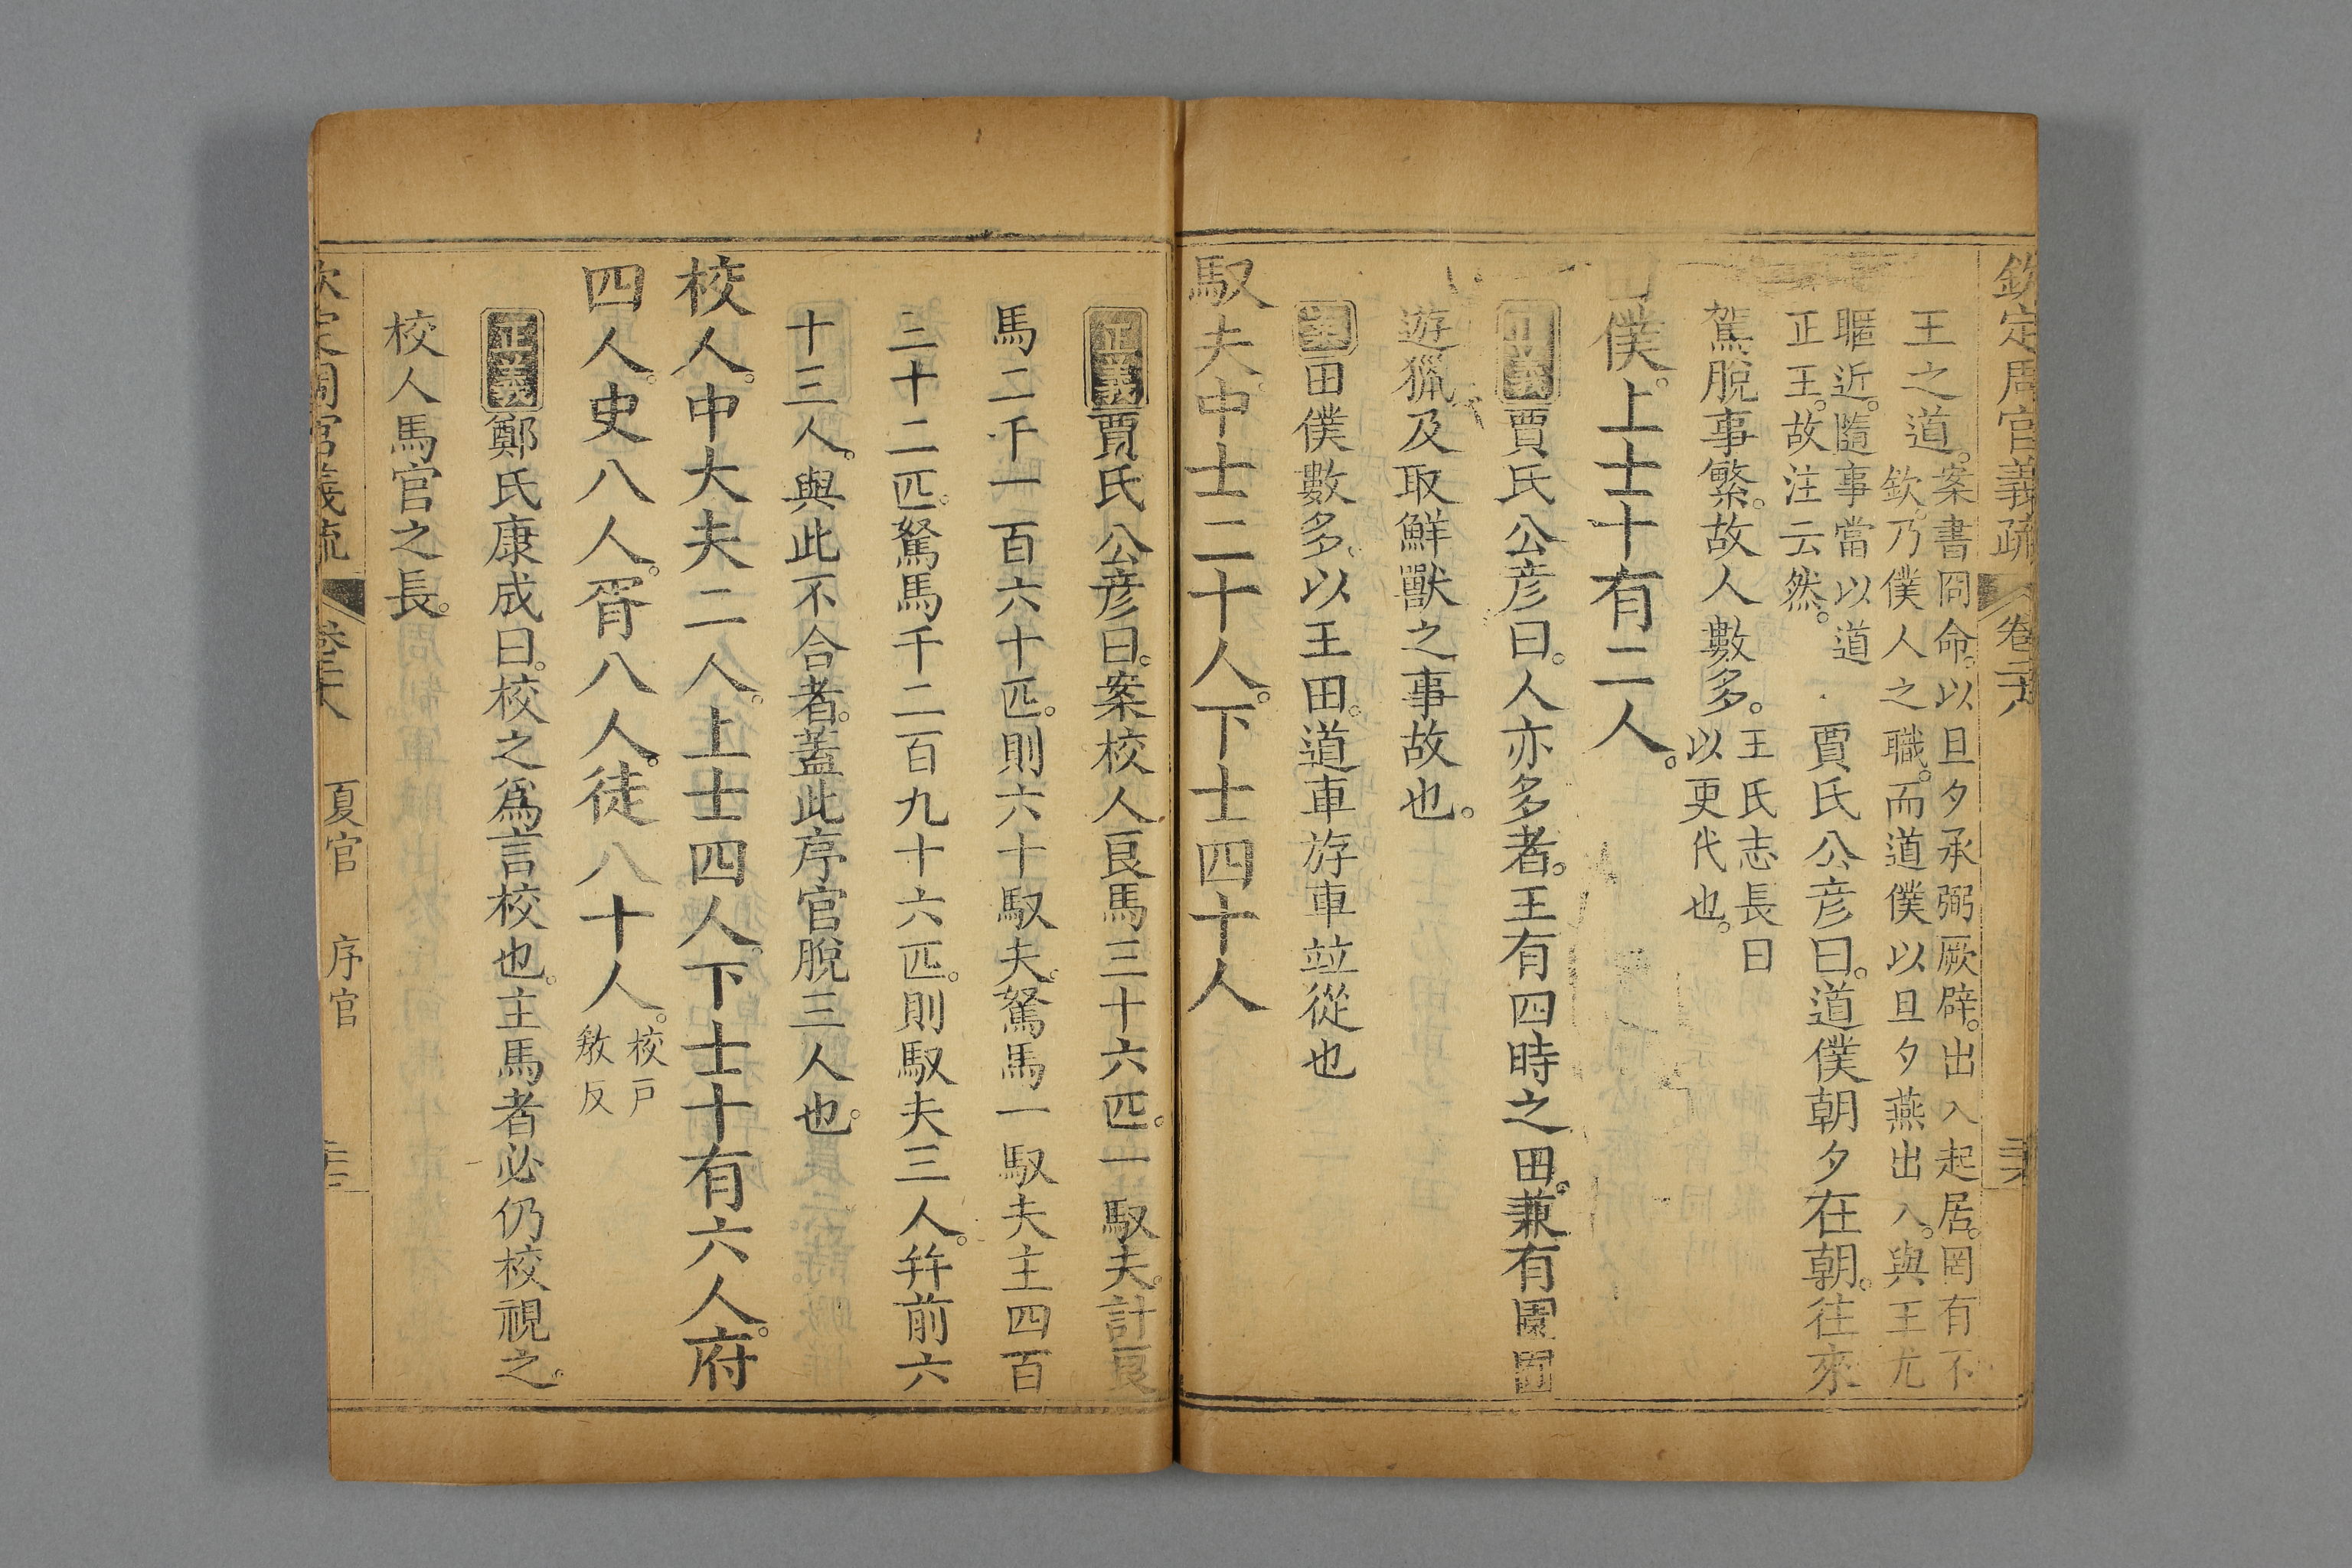 欽定周官義疏 卷二十八
王之道。案書冏命。以旦夕承弼厥辟。出入起居。罔有不
欽。乃僕人之職。而道僕以旦夕燕出入。與王尤
暱近。隨事當以道
正王。故注云然。 賈氏公彦曰。道僕朝夕在朝。往來
駕脫事繁。故人數多。王氏志長曰
以更代也。
僕。上士十有二人。
正義賈氏公彦曰。人亦多者。王有四時之田。兼有園囿
遊獵及取鮮獸之事故也。
田僕數多。以王田。道車斿車竝從也
馭夫。中士二十人。下士四十人
正義賈氏公彦曰。案校人良馬三十六匹。一馭夫。計良
馬二千一百六十匹。則六十馭夫。駑馬一馭夫主四百
三十二匹。駑馬千二百九十六匹。則馭夫三人。幷前六
十三人。與此不合者。蓋此序官脫三人也。
校人。中大夫二人。上士四人。下士十有六人。府
四人。史八人。胥八人。徒八十人。校戸
敎反
正義鄭氏康成曰。校之爲言校也。主馬者必仍校視之。
校人馬官之長。
欽定周官義疏 卷二十八 夏官 序官